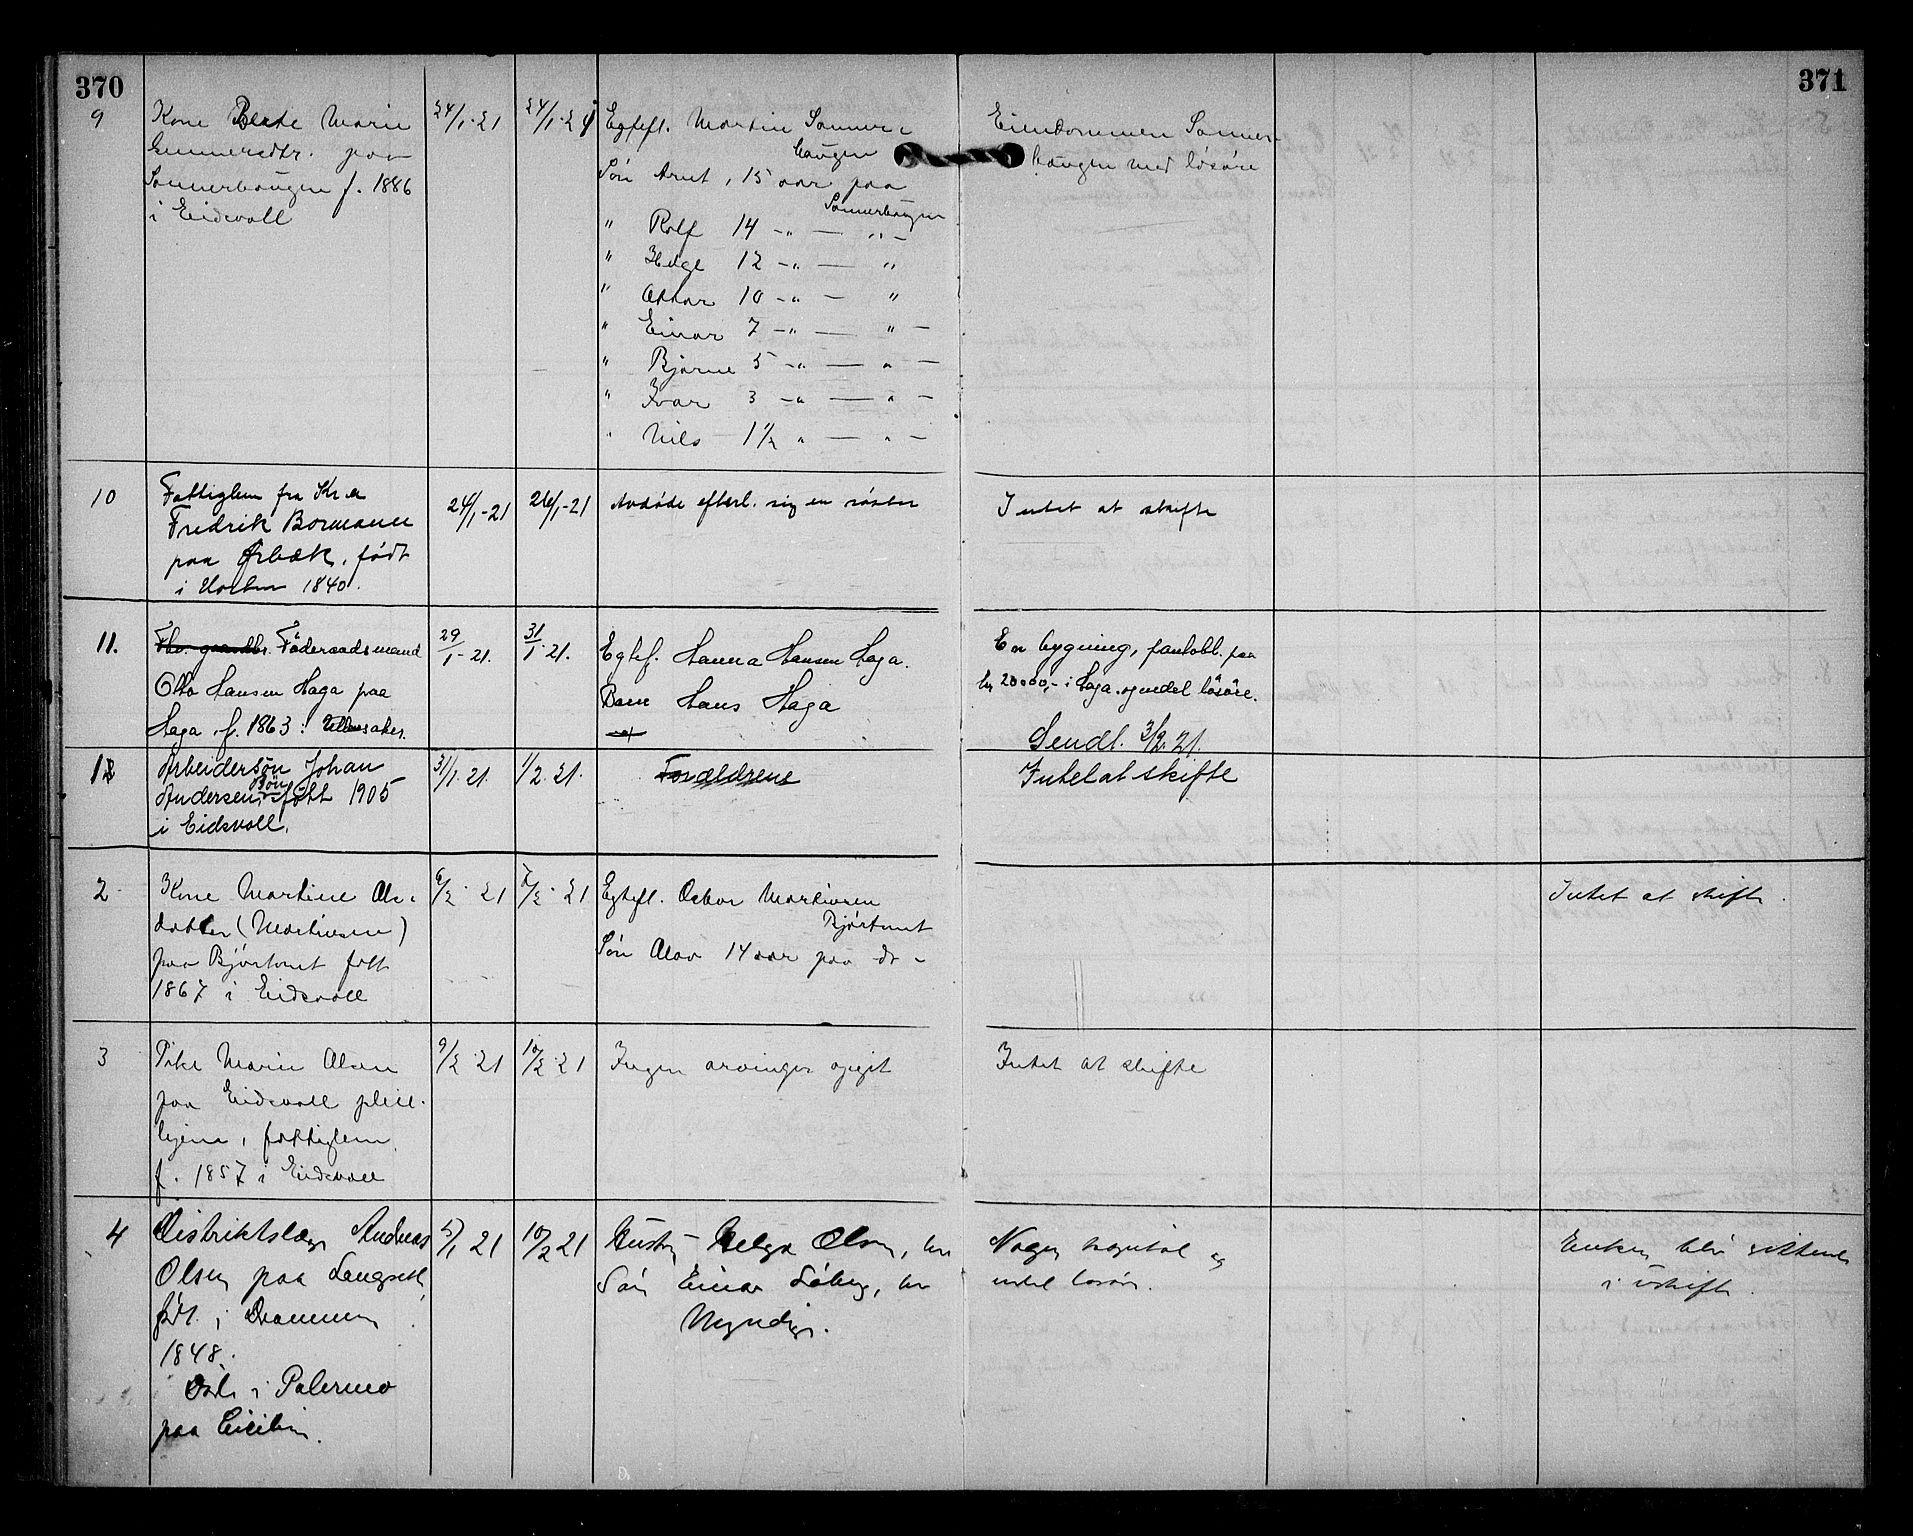 370
371
9
Kone Berte Marie
Gunnersdtr. paa
Sannerhaugen f. 1886
i Eidsvoll
24/1-21
24/1-21
Egtefl. Martin Sanner-
haugen
Søn Arnt, 15 aar paa
Sannerhaugen
" Rolf 14 -"- — "-
" Helge 12 -"- — "
" Ottar 10 -"- — "
" Einar 7 -"- — " -
" Bjarne 5 -"- — " -
" Ivar 3 -"- — " -
" Nils 1½ " — " -
Eiendommen Sanner-
haugen med løsøre
10
Fattiglem fra Kr.a
Fredrik Bormann
paa Ørbæk, født
i Horten 1840.
24/1-21
26/1-21
Avdøde efterl. sig en søster
Intet at skifte
11.
Fhv. gaardbr. Föderaadsmand
Otto Hansen Haga paa
Haga, f. 1863 i Ullensaker.
29/1-21.
31/1-21.
Egtef. Hanna Hansen Haga.
Barn Hans Haga
En bygning, pantobl. paa
kr 20000,- i Haga, og endel lösöre.
Sendt. 3/2 21.
12
Arbeidersön Johan
Andersen Bön født 1905
i Eidsvoll.
31/1 21.
1/2 21.
Forældrene
Intet at skifte
2
Kone Martine Ols-
datter (Martinsen)
paa Bjørtomt født
1867 i Eidsvoll
6/2 - 21
7/2 - 21
Egtefl. Oskar Martinsen
Bjørtomt
Søn Olav 14 aar paa do -
Intet at skifte.
3
Pike Marie Olsen
paa Eidsvoll pleie-
hjem, fattiglem
f. 1857 i Eidsvoll
9/2 21
10/2 21
Ingen arvinger opgit
Intet at skifte
4
Distriktslæge Andreas
Olsen paa Langset,
født i Drammen
1848.
Døde i Palermo
paa Cicilien.
5/1 21
10/2 21
Hustru Helga Olsen, her
Søn Einar Løberg, her
Myndige.
Nogen kapital og
endel løsøre.
Enken blir sittende
i uskifte.